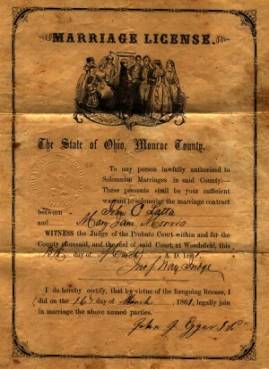 MARRIAGE LICENSE.
The State of Ohio, Monroe County.
To any person lawfully authorized to
Solemnize Marriages in said County:—
These presents shall be your sufficient
warrant for solemnizing the marriage contract
between John C Latta
and Mary Jane Morris
WITNESS the Judge of the Probate Court within and for the
County aforesaid, and the seal of said Court, at Woodsfield, this
day of March A. D. 1861.
Judge
I do hereby certify, that by virtue of the foregoing license, I
did on the 16th day of March 1861, legally join
in marriage the above named parties.
John J